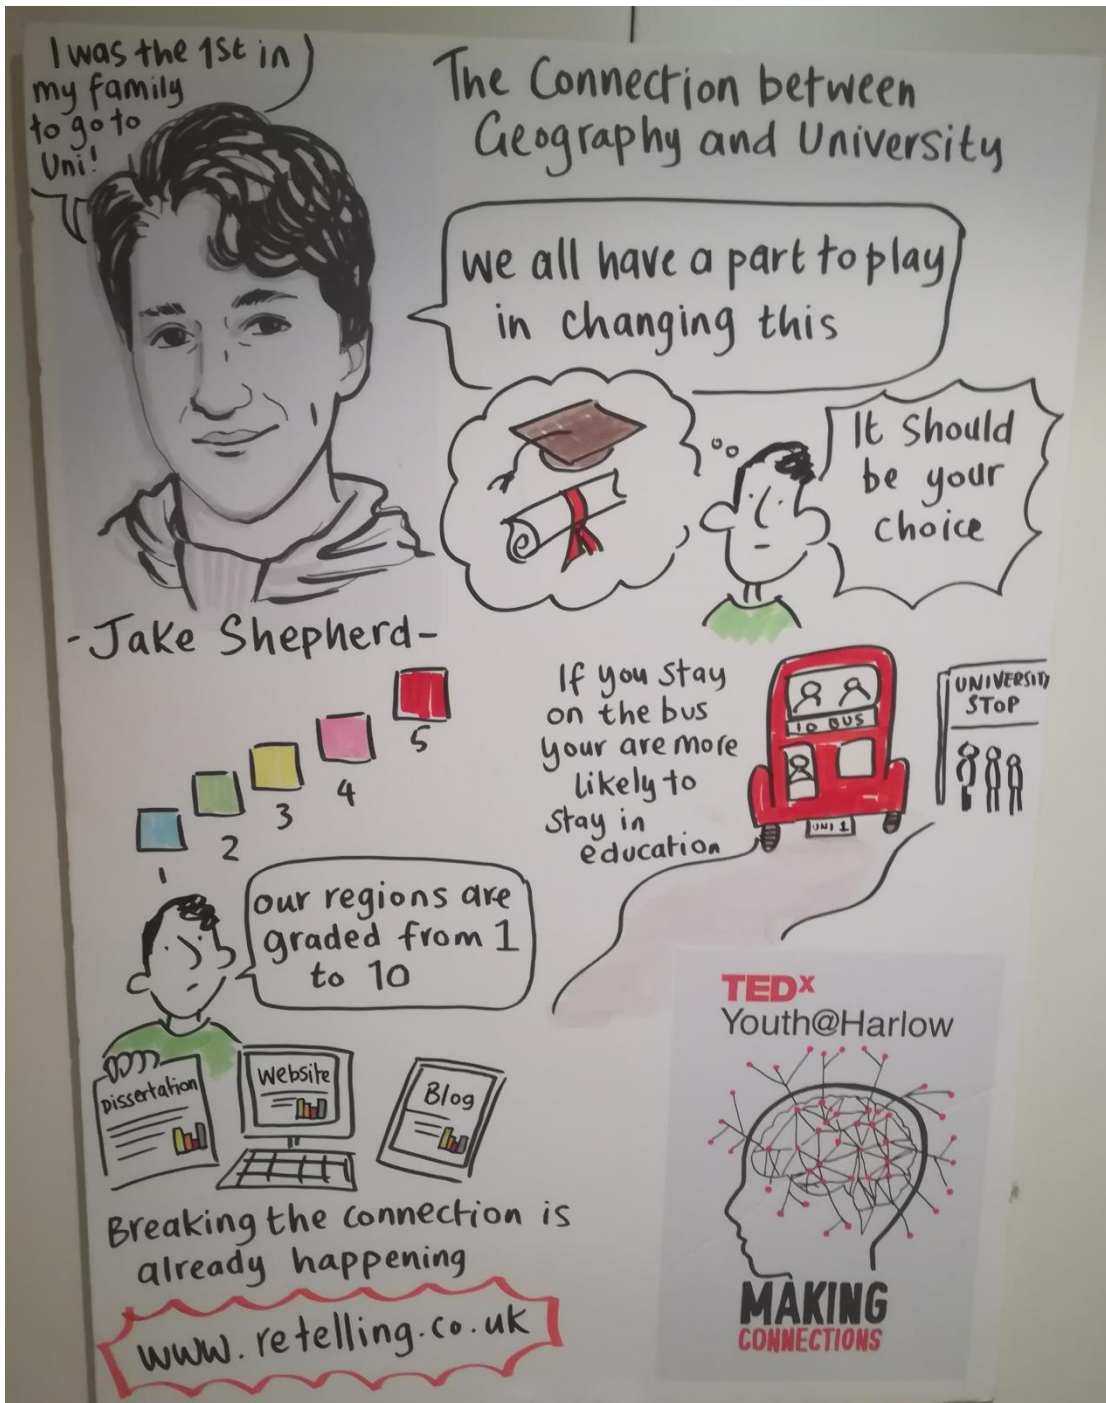 I was the 1st in
my family
to go to
Uni!
The Connection between
Geography and University
we all have a part to play
in changing this
It should
be your
choice
-Jake Shepherd-
1
2
3
4
5
If you stay
on the bus
your are more
likely to
stay in
education
10 BUS
UNI 1
UNIVERSITY
STOP
our regions are
graded from 1
to 10
Dissertation
Website
Blog
Breaking the connection is
already happening
www.retelling.co.uk
TEDx
Youth@Harlow
MAKING
CONNECTIONS